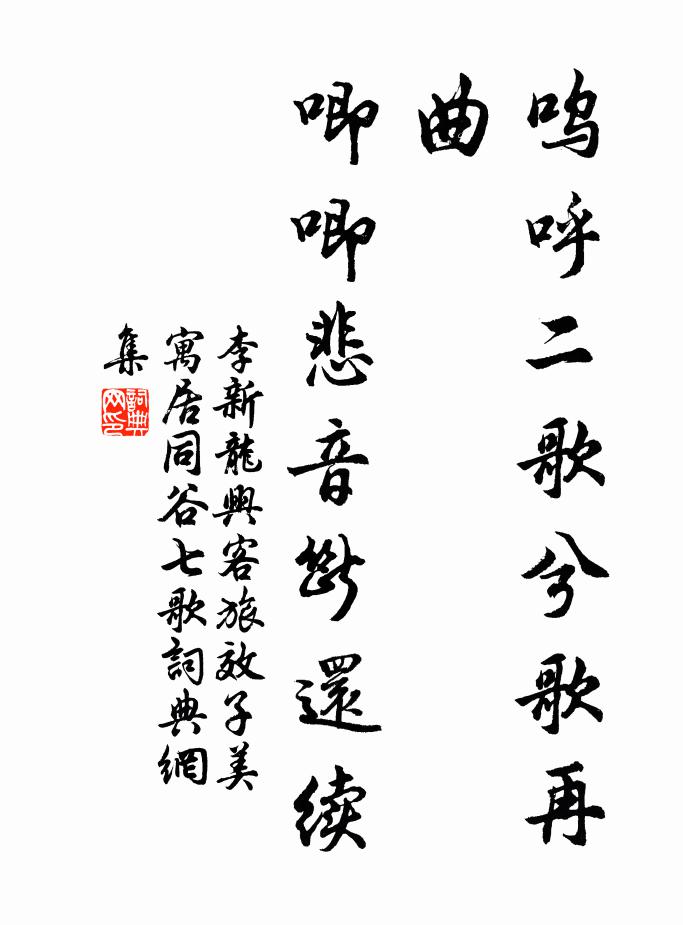 嗚呼二歌兮歌再
曲
唧唧悲音斷還续
李新龍興客旅效子美
寓居同谷七歌詞典網
集
詞典
网印